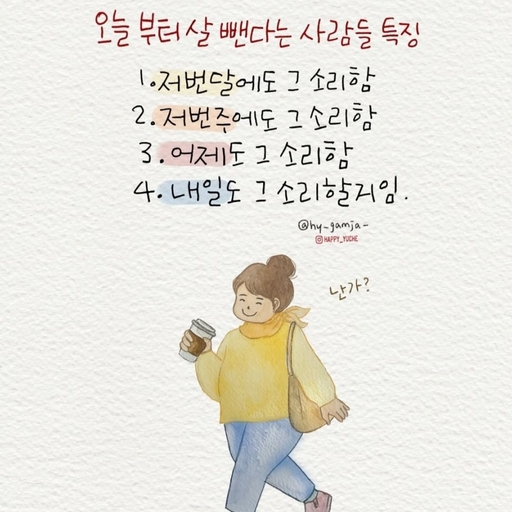 오늘 부터 살 뺀다는 사람들 특징
1. 저번달에도 그 소리함
2. 저번주에도 그 소리함
3. 어제도 그 소리함
4. 내일도 그 소리할거임.
@hy_gamja_
HAPPY_YUCHE
난가?